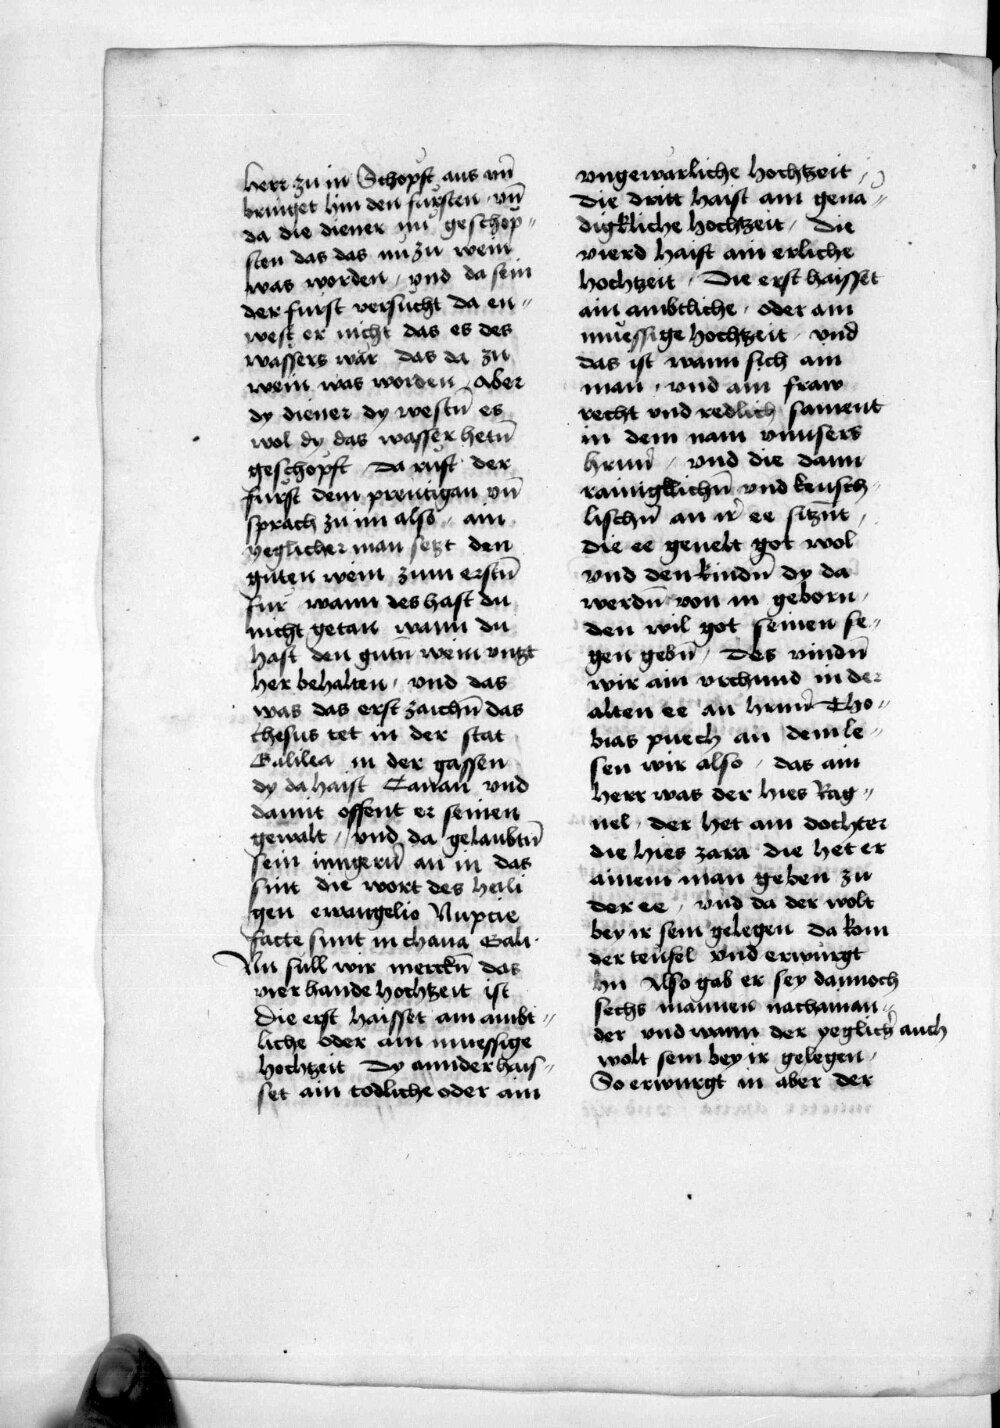 herr zu in Schopft aus vn̄
bringet hin den fursten vn̄
da die diener nu geschop„
ften das das nu zu wein
was worden / vnd da sein
der furst versucht da en„
west er nicht das es des
wassers wär das da zu
wein was worden Aber
dy diener dy westn̄ es
wol dy das wasser hetn̄
geschopft Da rüft der
fürst dem preutigan vn̄
sprach zu im also / ain
yeglicher man setzt den
guten wein zum erstn̄
für wann des hast du
nicht getan wann du
hast den gutn̄ wein vntzt
her behalten / vnd das
was das erst zaichn̄ das
Ihesus tet in der stat
Galilea in der gassen
dy da haist Canan vnd
damit offent er seinen
gewalt / vnd da gelaubtn̄
sein jungern̄ an in das
sint die wort des heili
gen ewangelio Nupcie
facte sunt in chana Gali
Nu sull wir merckn̄ das
vier hande hochtzeit ist
Die erst haisset ain ambt„
liche oder ain muessige
hochtzeit Dy annder hais„
set ain todliche oder ain
vngewarliche hochtzeit /
Die dritt haist ain gena„
digkliche hochtzeit / Die
vierd haist ain erliche
hochtzeit / Die erst haisset
ain ambtliche / oder ain
muessige hochtzeit / vnd
das ist wann sich ain
man / vnd ain fraw
recht vnd redlich sament
in dem nam vnnsers
hrnn̄ / vnd die dann
rainigklichn̄ vnd keusch„
lischn̄ an ir ee sitzn̄t /
die ee geuelt got wol
vnd den kindn̄ dy da
werdn̄ von in geborn /
den wil got seinen se„
gen gebn̄ / Des vindn̄
wir ain vrchund in der
alten ee an hrnn̄ Tho„
bias puech an dem le„
sen wir also / das ain
herr was der hies Rag„
uel / der het ain dochter
die hies zara die het er
ainem man geben zu
der ee / vnd da der wolt
bey ir sein gelegen da kom
der teufel vnd erwürgt
hn Also gab er sey dannoch
sechs mannen nachainan„
der vnd wann der yeglich̄ auch
wolt sein bey ir gelegen /
So erwurgt in aber der